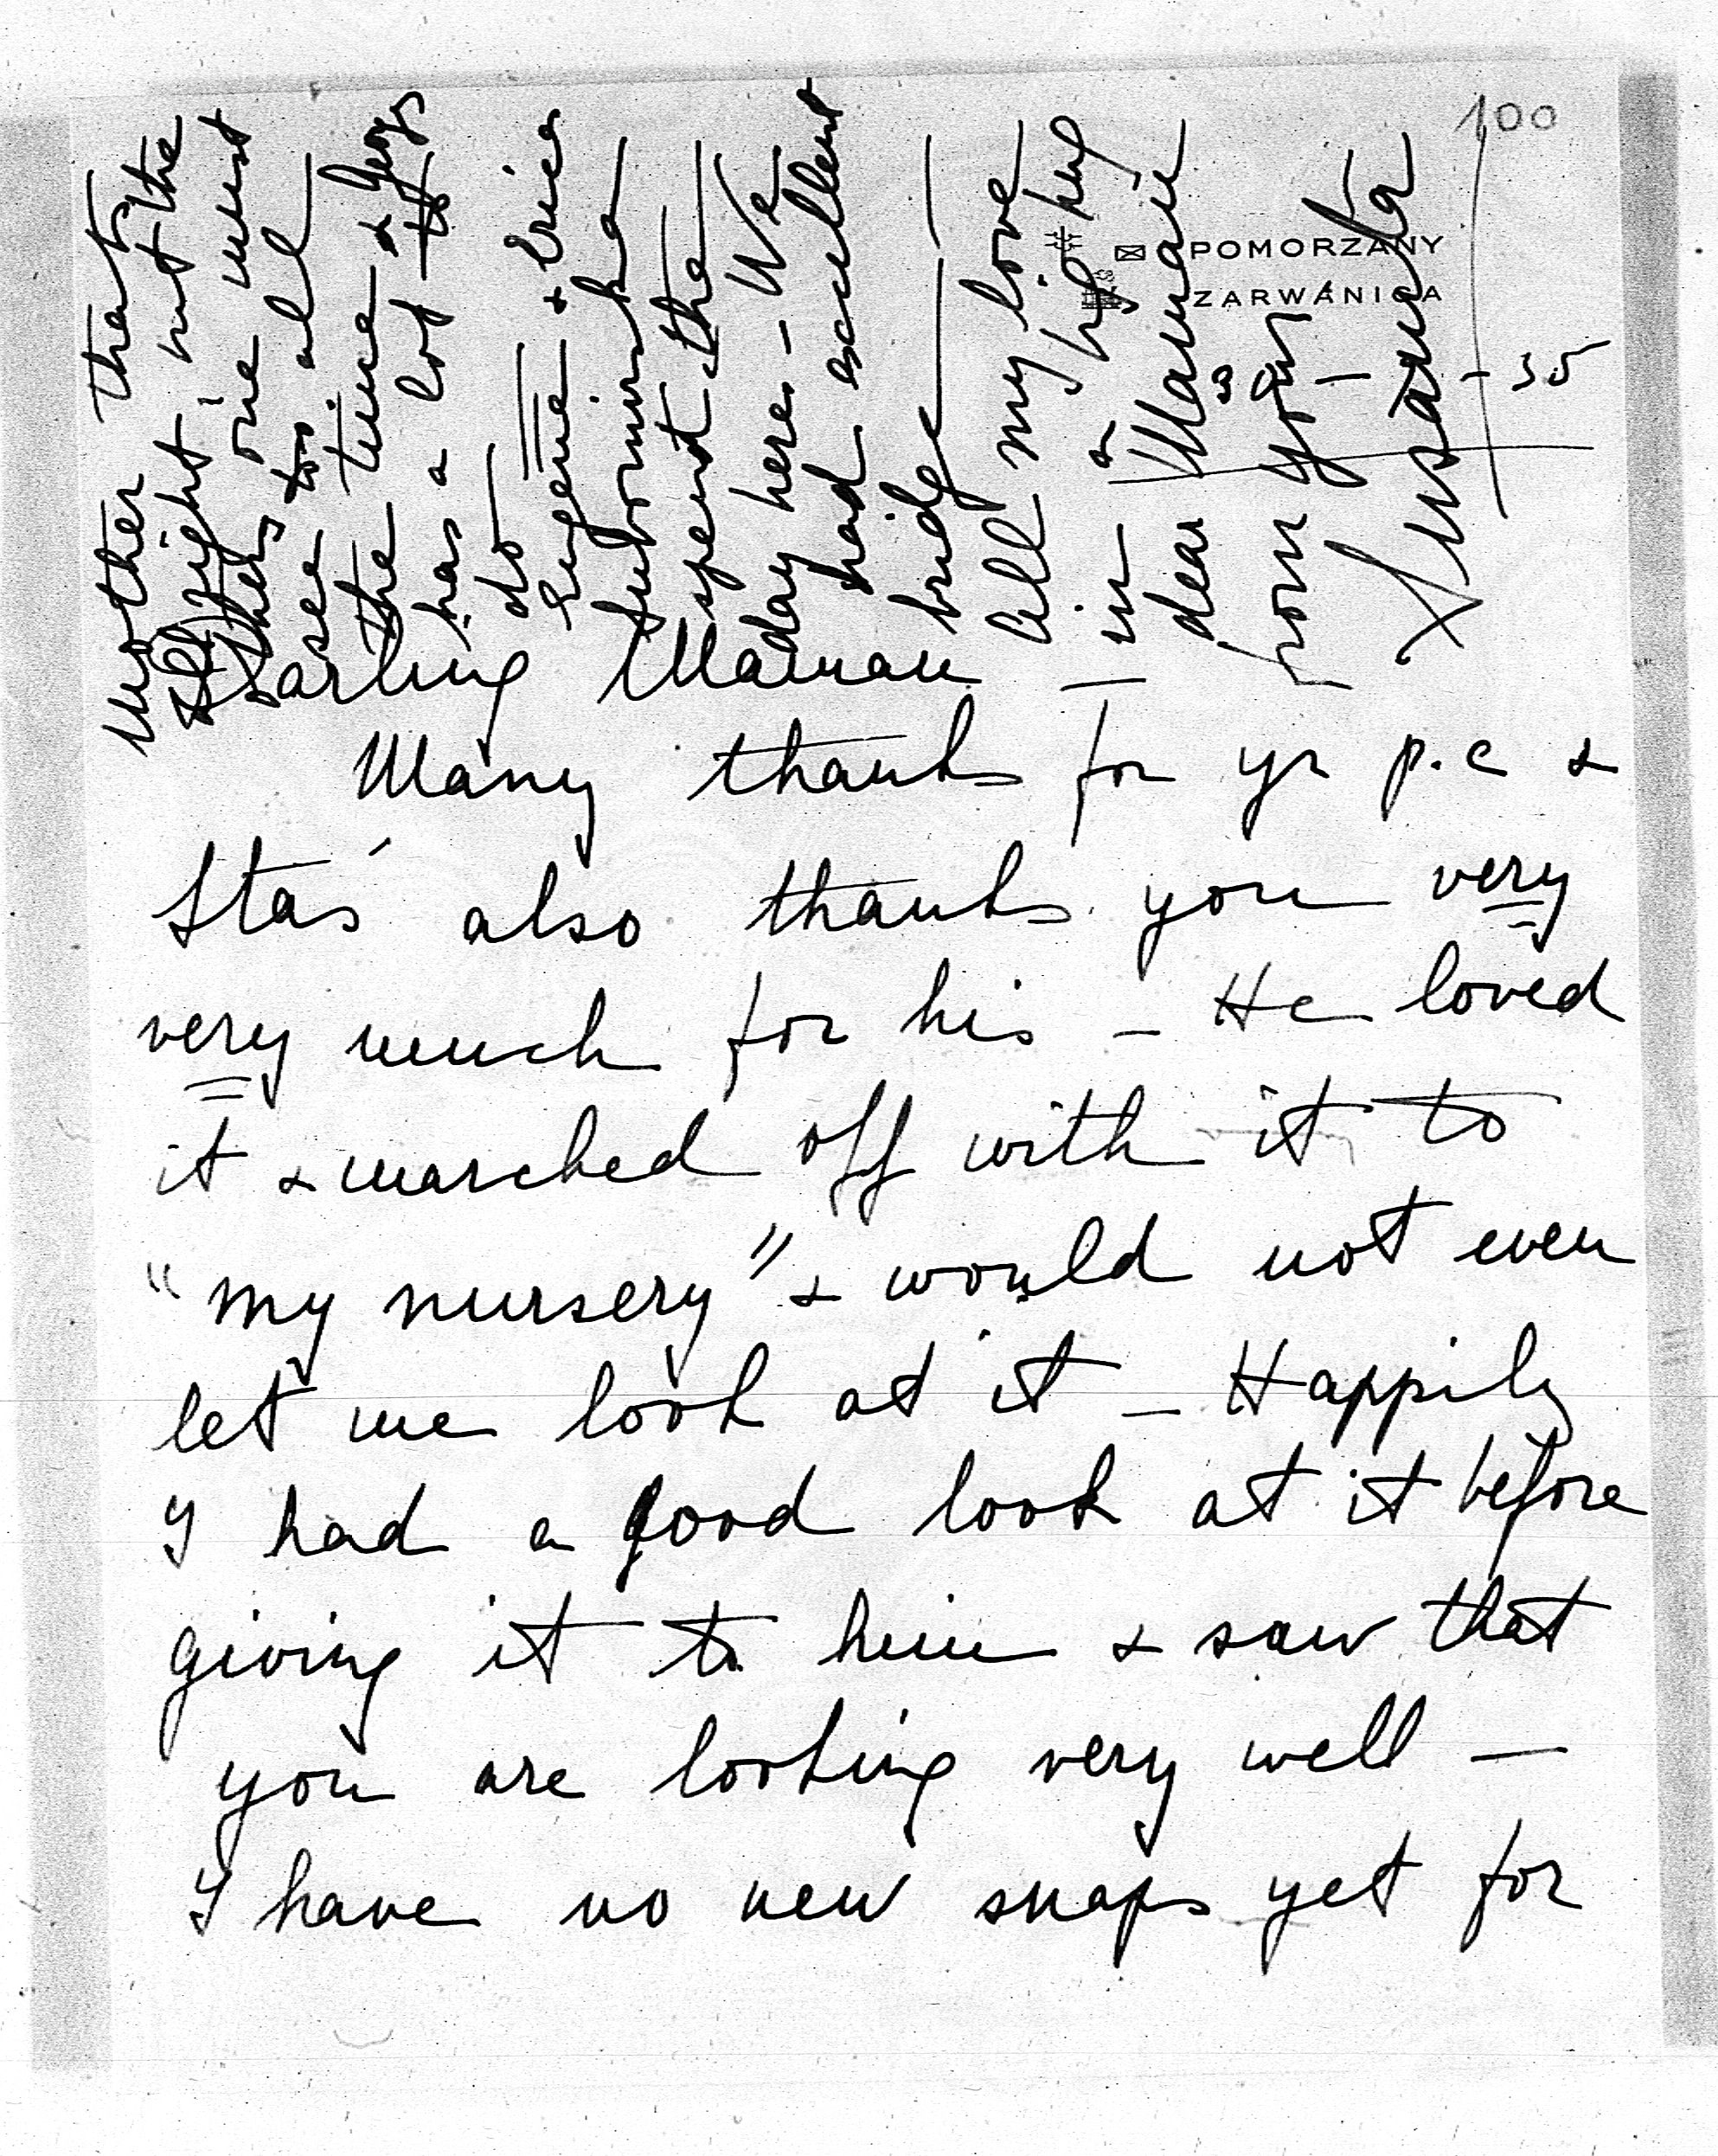 100
POMORZANY
ZARWANICA
- 3 - - 35
Darling Maman —
Many thanks for yr p.c &
Staś also thanks you very
very much for his - He loved
it & marched off with it to
"my nursery" & would not even
let me look at it - Happily
I had a good look at it before
giving it to him & saw that
you are looking very well —
I have no new snaps yet for
Mother that
right but the
others one must
see to all
the time &
has a lot to
do
Eugene & Erica
spent the
day here - We
had excellent
bridge —
All my love
in a big hug
dear Maman
from your
Zuzanka